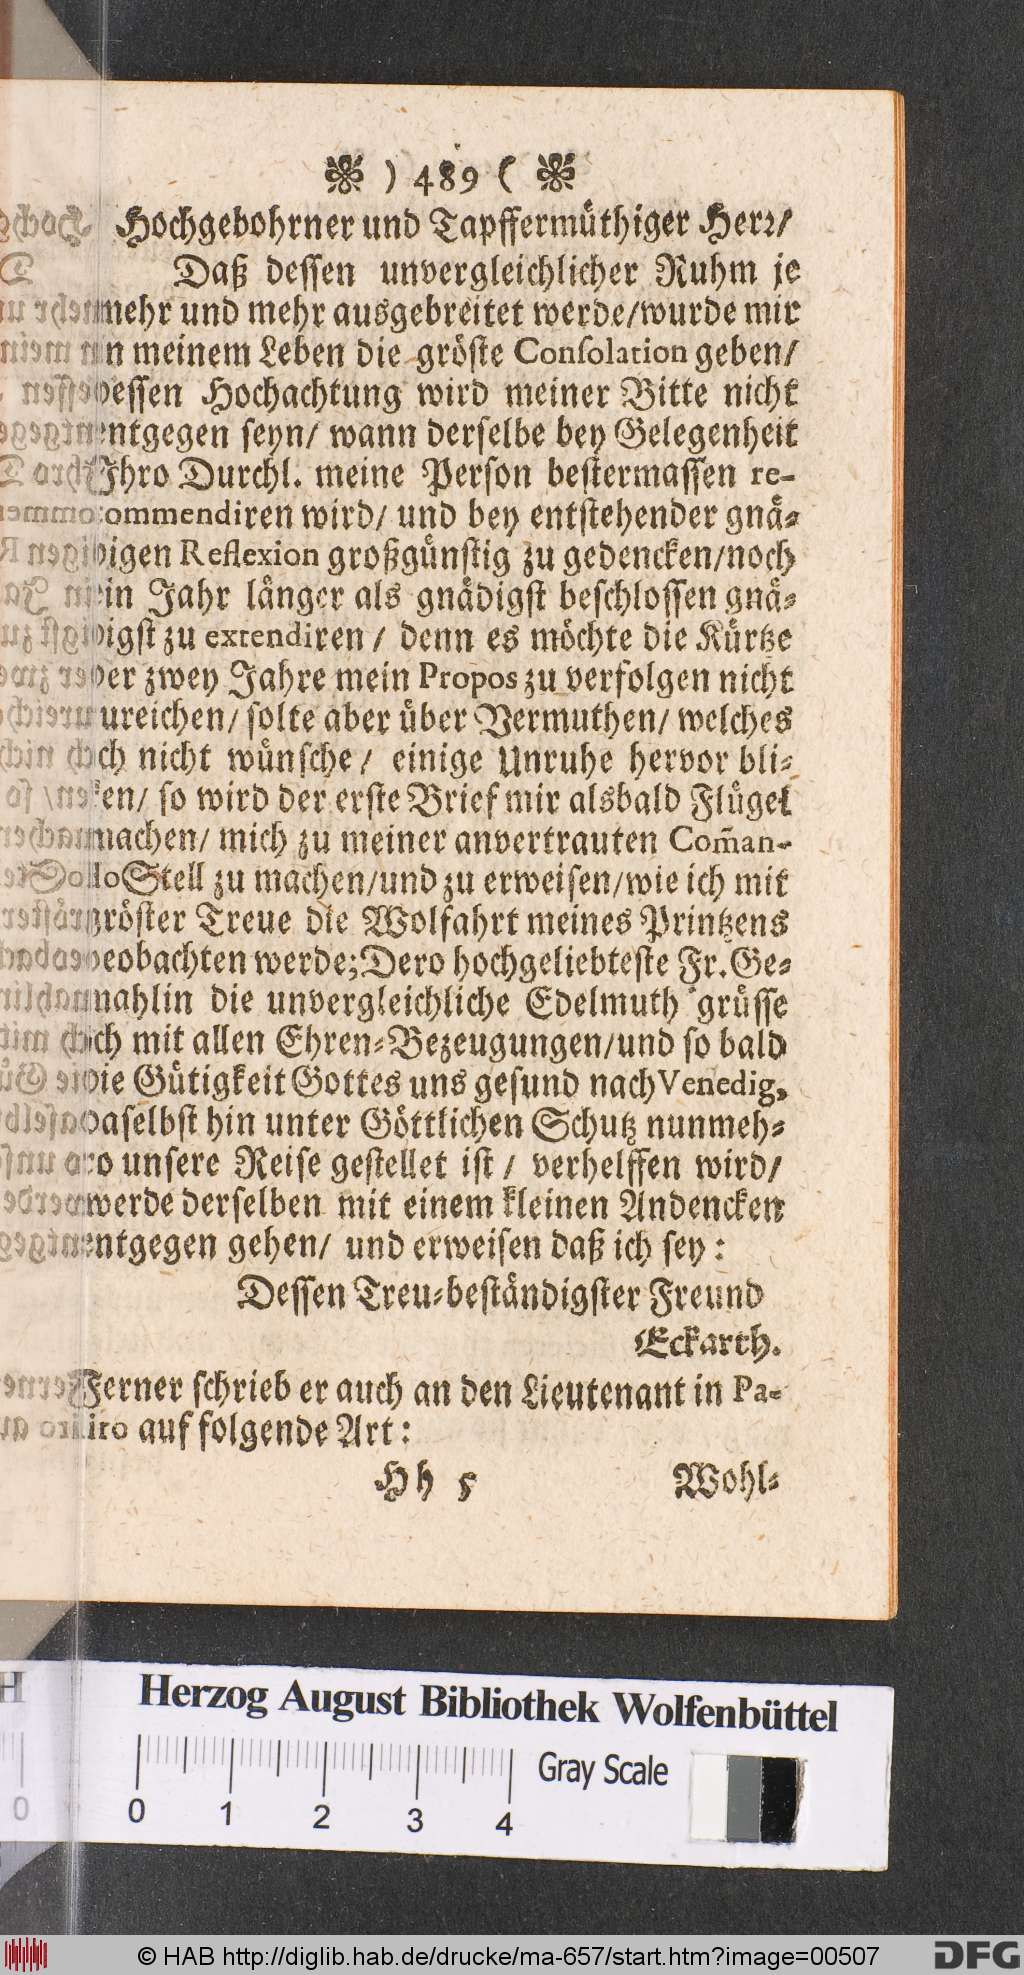 ) 489 (
Hochgebohrner und Tapffermüthiger Herr/
Daß dessen unvergleichlicher Ruhm je
mehr und mehr ausgebreitet werde/wurde mir
in meinem Leben die gröste Consolation geben/
dessen Hochachtung wird meiner Bitte nicht
entgegen seyn/ wann derselbe bey Gelegenheit
Ihro Durchl. meine Person bestermassen re-
commendiren wird/ und bey entstehender gnä-
digen Reflexion großgünstig zu gedencken/noch
ein Jahr länger als gnädigst beschlossen gnä-
digst zu extendiren/ denn es möchte die Kürtze
der zwey Jahre mein Propos zu verfolgen nicht
zureichen/ solte aber über Vermuthen/ welches
ich nicht wünsche/ einige Unruhe hervor bli-
cken/ so wird der erste Brief mir alsbald Flügel
machen/ mich zu meiner anvertrauten Com̃an-
do Stell zu machen/und zu erweisen/wie ich mit
gröster Treue die Wolfahrt meines Printzens
beobachten werde; Dero hochgeliebteste Fr. Ge-
mahlin die unvergleichliche Edelmuth grüsse
ich mit allen Ehren-Bezeugungen/und so bald
die Gütigkeit Gottes uns gesund nach Venedig,
daselbst hin unter Göttlichen Schutz nunmeh-
ro unsere Reise gestellet ist/ verhelffen wird/
werde derselben mit einem kleinen Andencken
entgegen gehen/ und erweisen daß ich sey:
Dessen Treu-beständigster Freund
Eckarth.
Ferner schrieb er auch an den Lieutenant in Pa-
ro auf folgende Art:
Hh 5 Wohl-
Herzog August Bibliothek Wolfenbüttel
Gray Scale
0 0 1 2 3 4
© HAB http://diglib.hab.de/drucke/ma-657/start.htm?image=00507
DFG